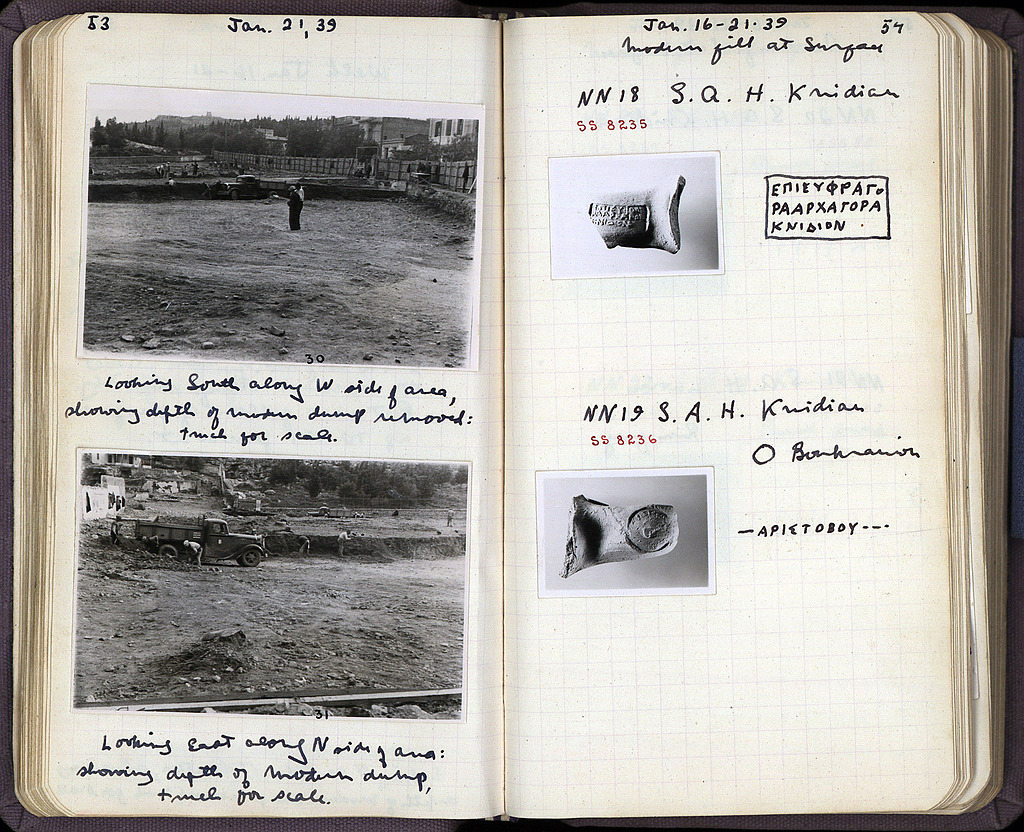 53
Jan. 21, 39
30
Looking South along W side of area,
showing depth of modern dump removed:
truck for scale.
31
Looking East along N side of area:
showing depth of modern dump,
truck for scale.
Jan. 16-21.39
54
Modern fill at Surface
NN18 S.A. H. Knidian
SS 8235
ΕΠΙΕΥΦΡΑΓΟ
ΡΑΑΡΧΑΓΟΡΑ
ΚΝΙΔΙΟΝ
NN19 S. A. H. Knidian
SS 8236
Boukranion
—ΑΡΙΣΤΟΒΟΥ---